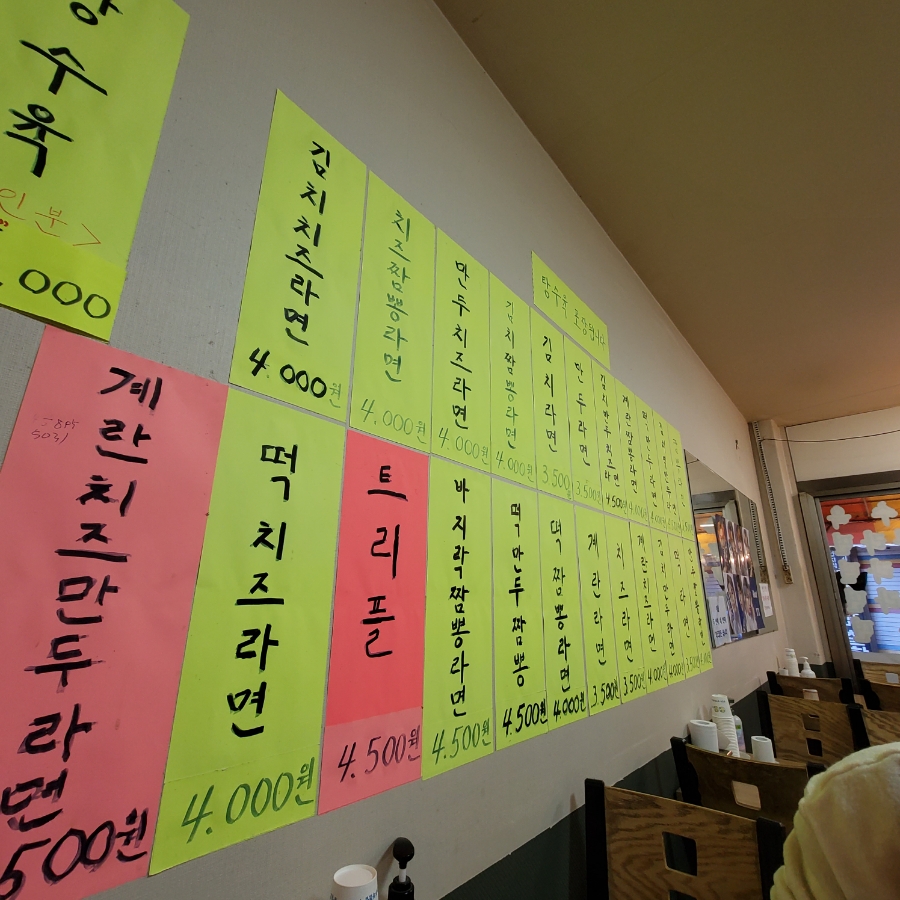 탕수육
인분>
,000
김치치즈라면
4.000원
치즈짬뽕라면
4.000원
만두치즈라면
4.000원
김치짬뽕라면
4.000원
탕수육 포장됩니다
김치라면
3.500
만두라면
3.500원
김치만두치즈라면
4.500원
계란짬뽕라면
계란치즈만두라면
500원
떡치즈라면
4.000원
트리플
4.500원
바지락짬뽕라면
4.500원
떡만두짬뽕
4.500원
떡짬뽕라면
4.000원
계란라면
3.500원
치즈라면
3.500원
계란치즈라면
4.000원
김치만두라면
4.000원
떡라면
3.500